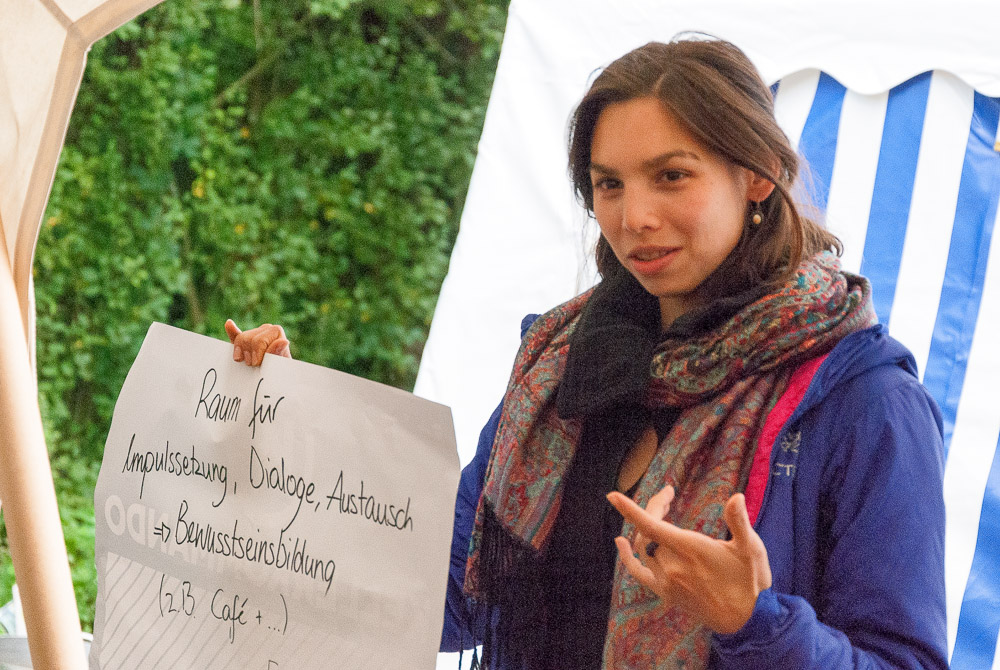 Raum für
Impulssetzung, Dialoge, Austausch
⇒ Bewusstseinsbildung
(z.B. Café + ...)